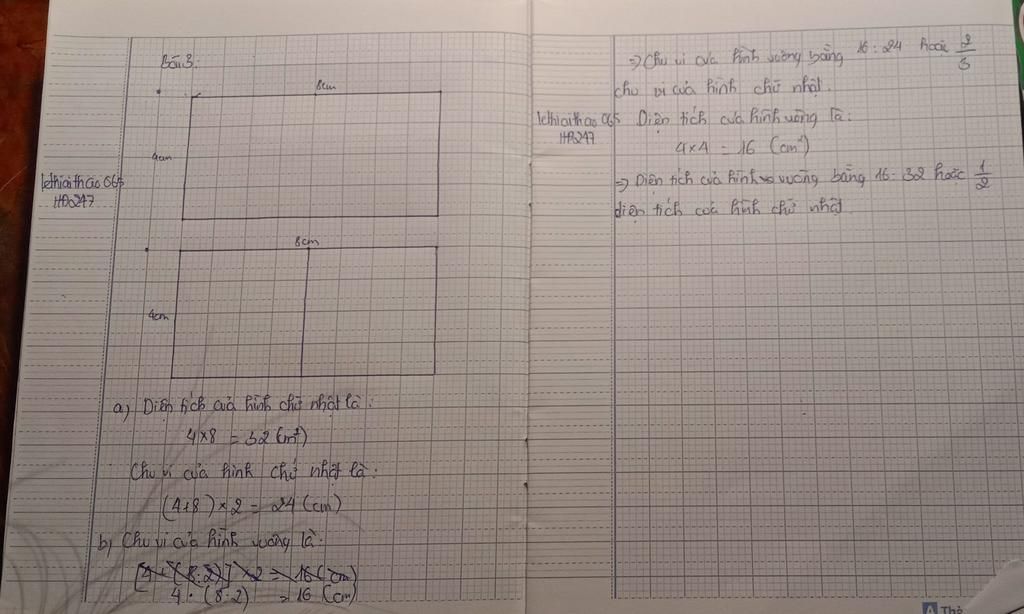 Bài 3:
8cm
4cm
lethiaithao065
HĐ247
8cm
4cm
a) Diện tích của hình chữ nhật là:
4×8 = 32 (m²)
Chu vi của hình chữ nhật là:
(4+8) × 2 = 24 (cm)
b) Chu vi của hình vuông là:
[4 + (8:2)] × 2 = 16 (cm)
4 · (8:2) = 16 (cm)
=> Chu vi của hình vuông bằng 16:24 hoặc 2/3
chu vi của hình chữ nhật.
lethiaithao065
HĐ247
Diện tích của hình vuông là:
4×4 = 16 (cm²)
=> Diện tích của hình vuông bằng 16:32 hoặc 1/2
diện tích của hình chữ nhật.